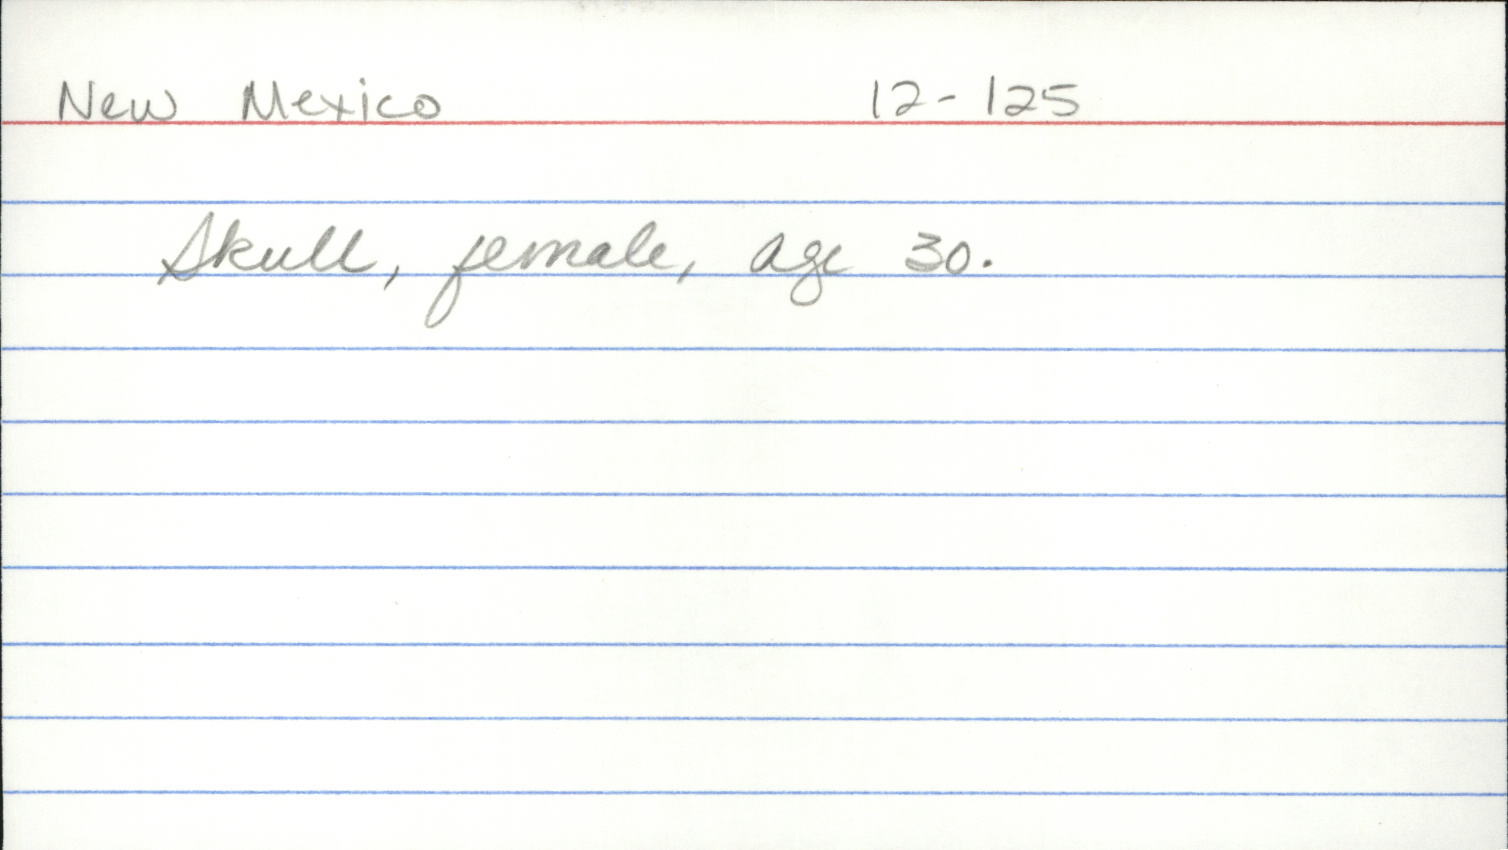 New Mexico 12-125
Skull, female, age 30.